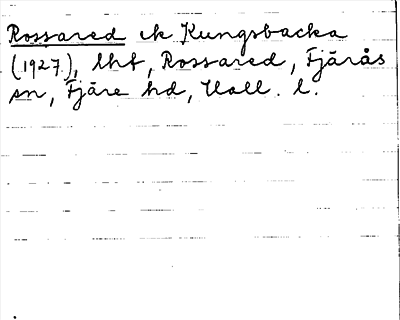 Rossared ek Kungsbacka
(1927), lht, Rossared, Fjärås
sn, Fjäre hd, Hall. l.